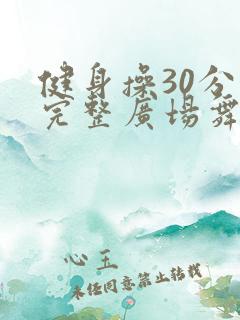 健身操30分
完整廣場舞
心玉
未经同意禁止转载